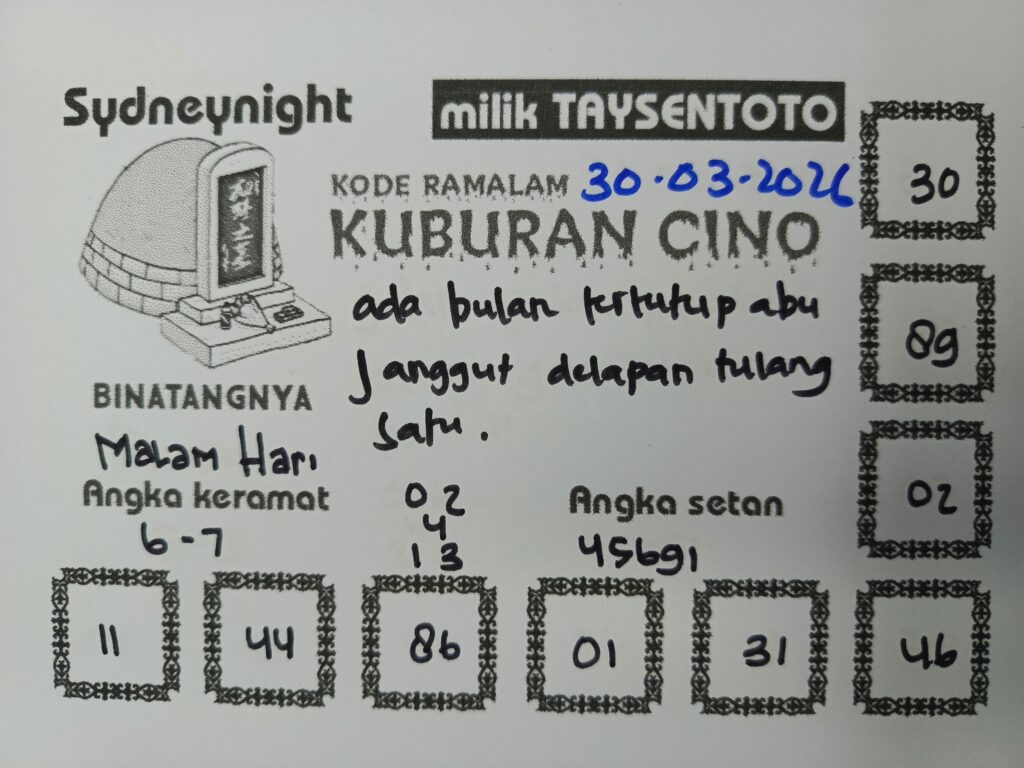 Sydneynight
milik TAYSENTOTO
KODE RAMALAM 30.03.2026
KUBURAN CINO
ada bulan tertutup abu
Janggut delapan tulang
satu.
BINATANGNYA
Malam Hari
Angka keramat
6-7
0 2
4
1 3
Angka setan
45691
30
89
02
11
44
86
01
31
46